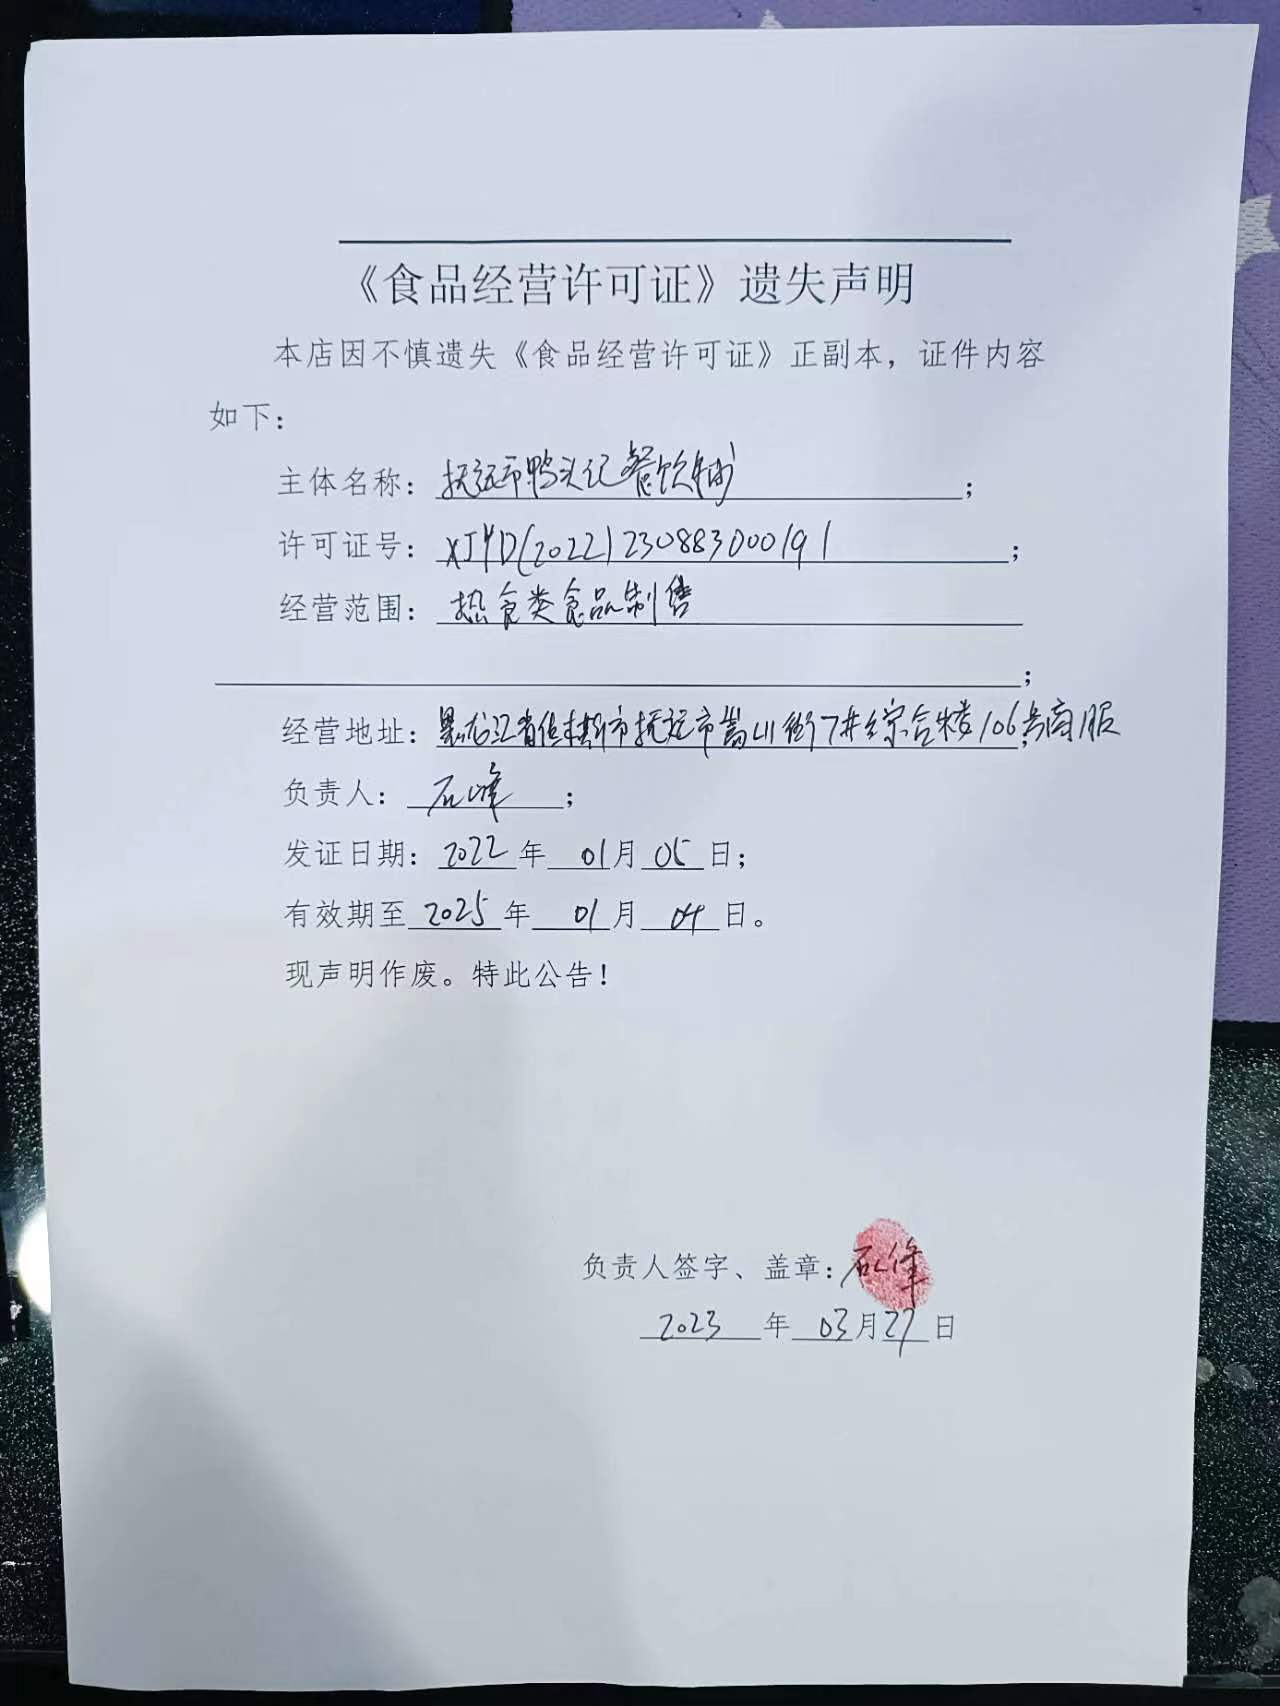 《食品经营许可证》遗失声明
本店因不慎遗失《食品经营许可证》正副本，证件内容
如下：
主体名称：抚远市鸭头记餐饮铺；
许可证号：XJYD(2022)230883000191；
经营范围：热食类食品制售
；
经营地址：黑龙江省佳木斯市抚远市嵩山街7#综合楼106号商服；
负责人：石峰；
发证日期：2022年01月05日；
有效期至2025年01月04日。
现声明作废。特此公告！
负责人签字、盖章：石峰
2023年03月27日